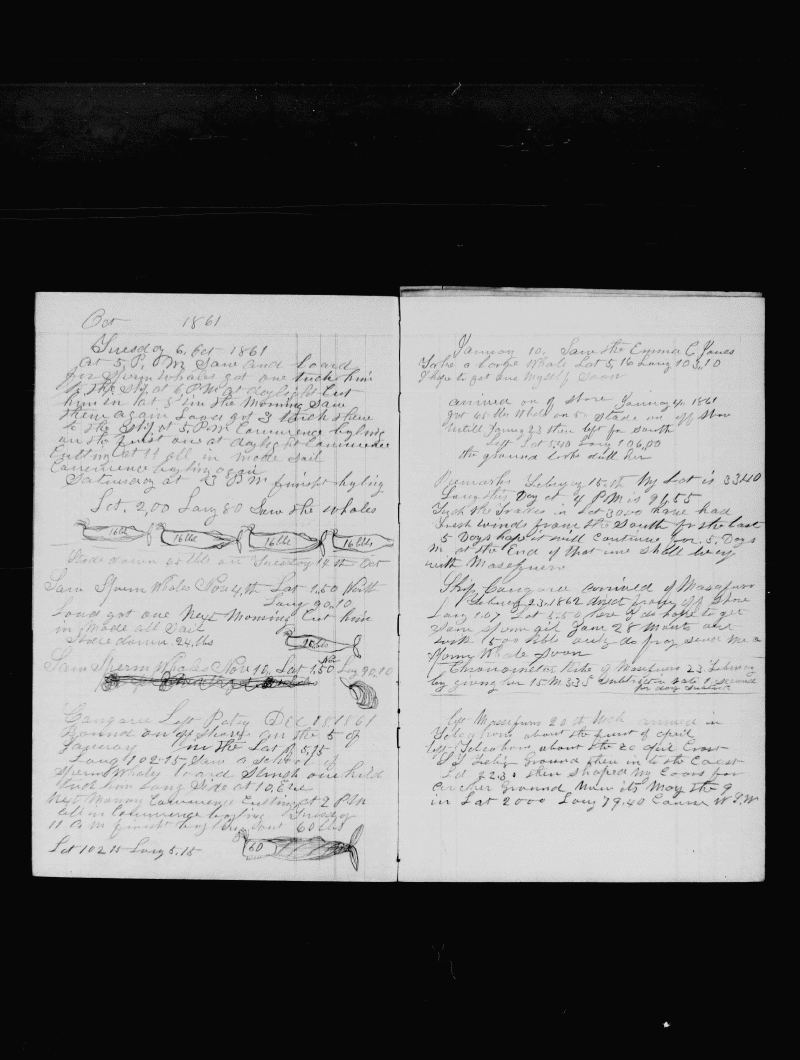 Oct 1861
Tuesday 6, Oct 1861
At 5, P, M Saw and loard
for Sperm whales got one tuck him
to the Ship at 6 P M at daylight Cut
him in at 8 in the Morning Saw
them again Loard got 3 tuck them
to the Ship at 5 P.M Commence boyling
on the furst one at daylight Commence
Cutting at 11 all in made Sail
Commence boyling again
Saturday at 3 P M finish boyling
Lat. 2,00 Long 80 Saw the whales
16 bls 16 bbls 16 bbls 16 bbls
Stode down bbls on Tuesday 14th Oct
Saw Sperm Whales Nov 4th Lat 1.50 North
Long 90.10
Loard got one Next Morning Cut him
in Made all Sail
Stode down 24 bls
Saw Sperm Whales Nov 10, Lat 1.50 Long 90.10
Cangaroo Left Patey DEC 18 1861
Bound on of Shore on the 5 of
January in the Lat 5,15
Long 102-15, Saw a school of
Sperm Whales loard Struck one kild
tuck him Long Side at 10,
Next Morning Commence Cutting at 2 P.M
all in Commence boyling Tuesday
11 A M finish boyling 60 bls
60
Lat 102 15 Long 5.15
January 10. Saw the Emma C Jones
Take a large Whale Lat 5,16 Long 103,10
I hope to get one Myself Soon
arrived on of Shore January 4, 1861
got 65 bls Whale on on off Shore
Untill January 23 then left for South
Left Lat 5.40 Long 106,00
the ground looks dull her
Remarks Febuary 15th My Lat is 33.40
Long this Day at 4 P M is 96,55
Tuck the Trades in Lat 30.00 have had
fresh winds from the South for the last
5 Days hope it will Continue for 5, Days
M at the End of that time Shall be up
with Masafuero
Ship Cangaroo arrived of Masafuro
Febuary 23, 1862 direct from off Shore
Long 107 Lat 5.50 here I do hope to get
Some Sperm oil Gone 28 Months and
with 1500 bbls only do pray Send Me a
Sperm Whale Soon
Chronometer Rite of Masafuro 23 Febuary
by giving her 15 M 33 S Subtract in gate 1 second
for day Subtract
Left Masafuro 20th Mch arrived in
Talcahono about the furst of April
left Talcahono about the 20 April Crost
then in to the Coast
Lat 22,3. then Shaped My Cours for
archer Ground Now its May the 9
in Lat 20.00 Long 79.40 Course W.S.W